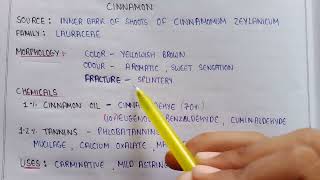 CINNAMON
SOURCE : INNER BARK OF SHOOTS OF CINNAMOMUM ZEYLANICUM
FAMILY : LAURACEAE
MORPHOLOGY : COLOR - YELLOWISH BROWN
ODOUR - AROMATIC, SWEET SENSATION
FRACTURE - SPLINTERY
CHEMICALS
1% CINNAMON OIL - (70%)
EUGENOL, BENZALDEHYDE, CUMINALDEHYDE
1-2% TANNINS - PHLOBATANN
MUCILAGE, CALCIUM OXALATE, MA
USES : CARMINATIVE, MILD ASTRIN